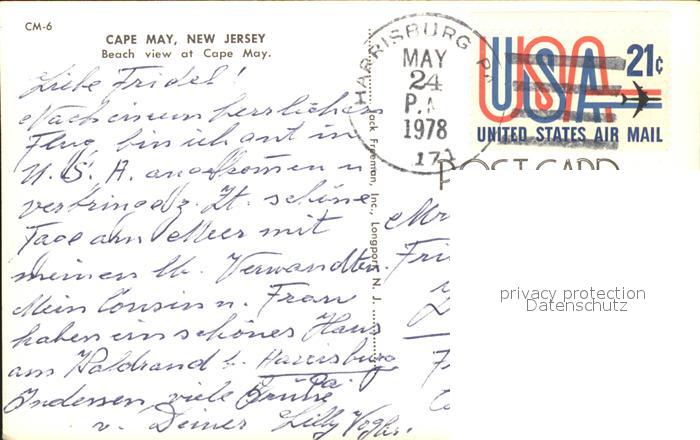 CM-6
CAPE MAY, NEW JERSEY
Beach view at Cape May.
Liebe Fridel!
Nach einem herrlichen
Flug bin ich gut in
U.S.A. angekommen u
verbringe z. Zt. schöne
Tage am Meer mit
meinen lb. Verwandten.
Mein Cousin u. Frau
haben ein schönes Haus
am Waldrand b. Harrisburg
Pa.
Indessen viele Grüße
v. Deiner Lilly
Jack Freeman, Inc., Longport, N. J.
HARRISBURG PA
MAY
24
P.M
1978
171
USA 21¢
UNITED STATES AIR MAIL
POST CARD
Mr
Fri
privacy protection
Datenschutz